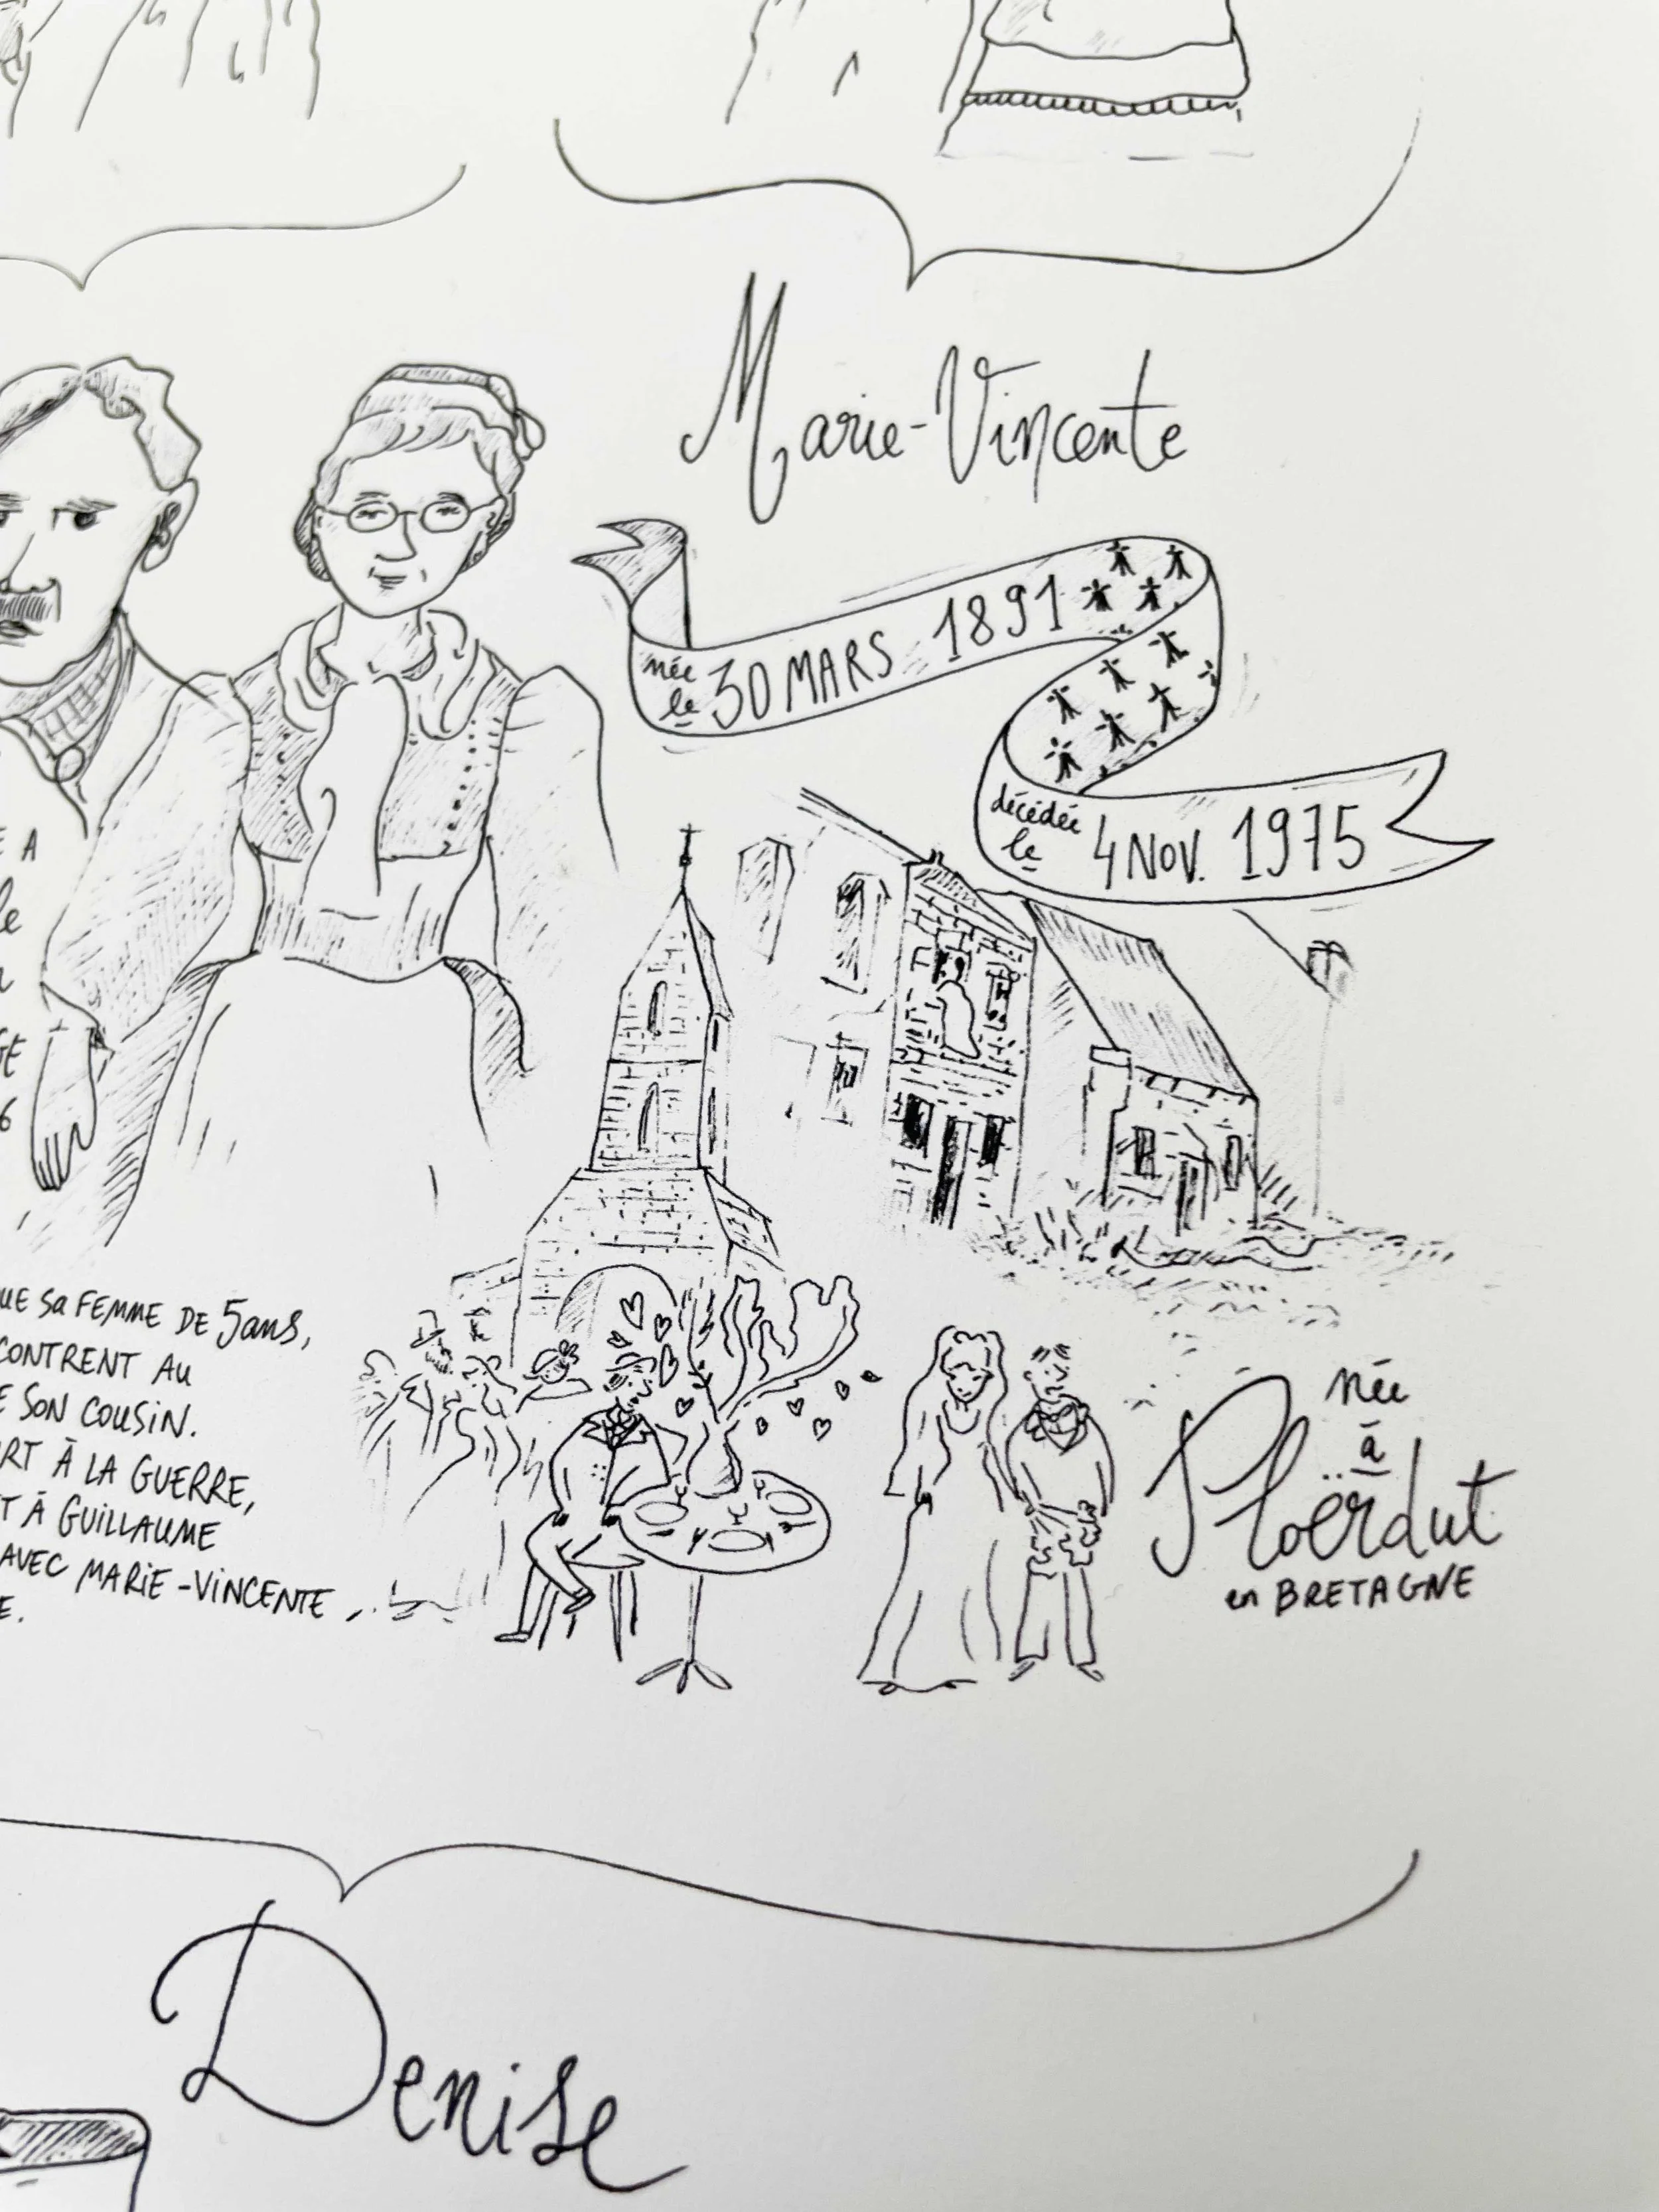 Marie-Vincente
née
le 30 MARS 1891
décédée
le 4 NOV. 1975
A
le
GE
6
UE Sa FEMME DE 5 ans,
CONTRENT AU
E SON COUSIN.
RT À LA GUERRE,
T À GUILLAUME
AVEC MARIE-VINCENTE
E.
née
à
Ploërdut
en BRETAGNE
Denise